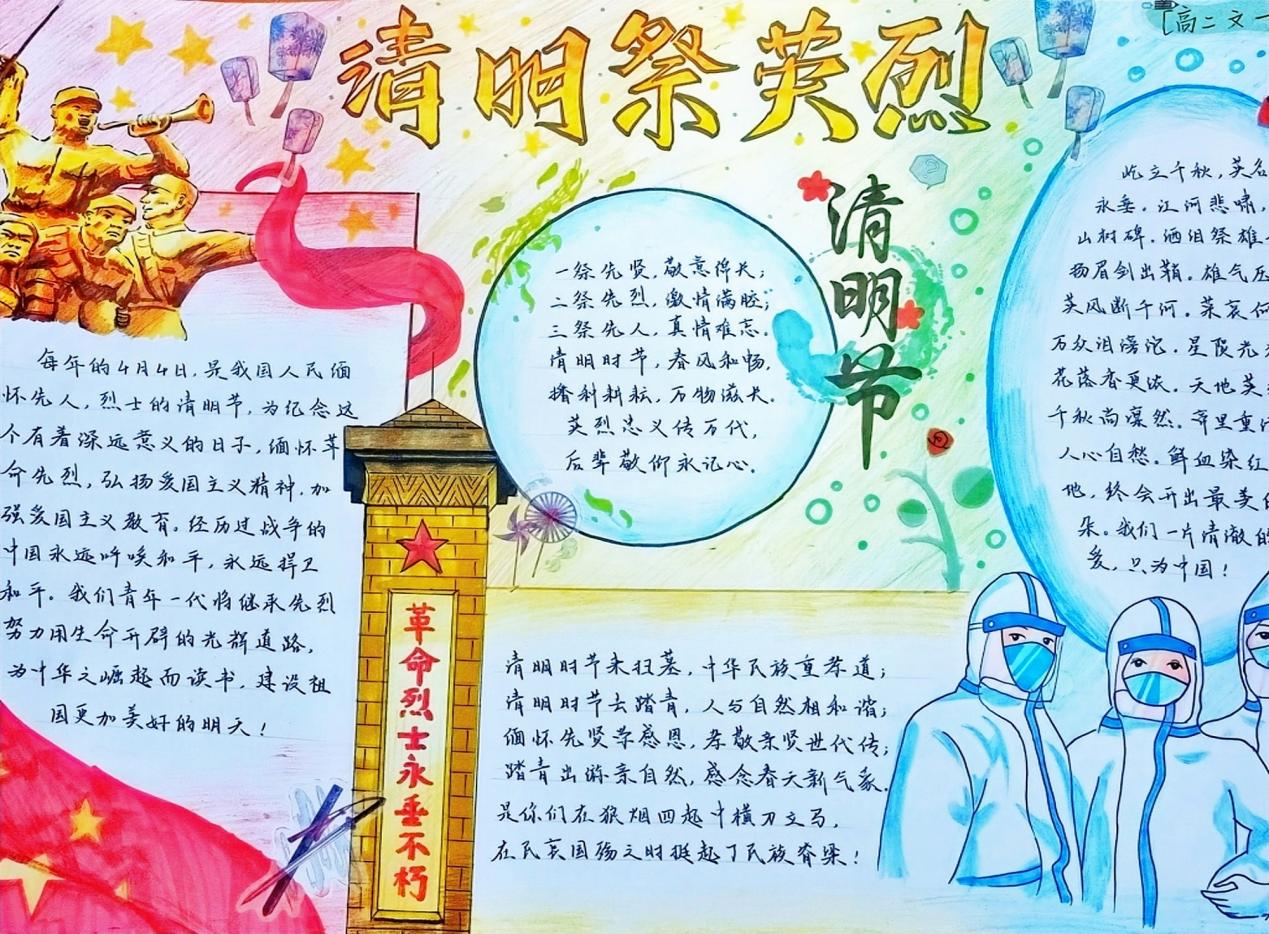 清明祭英烈
[高二文一
每年的4月4日,是我国人民缅
怀先人,烈士的清明节,为纪念这
个有着深远意义的日子,缅怀革
命先烈,弘扬爱国主义精神,加
强爱国主义教育。经历过战争的
中国永远呼唤和平,永远捍卫
和平。我们青年一代将继承先烈
努力用生命开辟的光辉道路,
为中华之崛起而读书,建设祖
国更加美好的明天!
革命烈士永垂不朽
一祭先贤,敬意绵长;
二祭先烈,激情满腔;
三祭先人,真情难忘。
清明时节,春风和畅,
播种耕耘,万物滋长。
英烈忠义传万代,
后辈敬仰永记心。
清明节
清明时节来扫墓,中华民族重孝道;
清明时节去踏青,人与自然相和谐;
缅怀先贤荣感恩,孝敬亲贤世代传;
踏青出游亲自然,感念春天新气象。
是你们在狼烟四起中横刀立马,
在民哀国殇之时挺起了民族脊梁!
屹立千秋,英名
永垂。江河悲啸,
山村碑。洒泪祭雄
扬眉剑出鞘。雄气压
英风断千河。荣哀何
万众泪滂沱。星陨光
花落香更浓。天地英
千秋尚凛然。哥里重
人心自愁。鲜血染红
地,终会开出最美的
朵。我们一片清澈的
爱,只为中国!